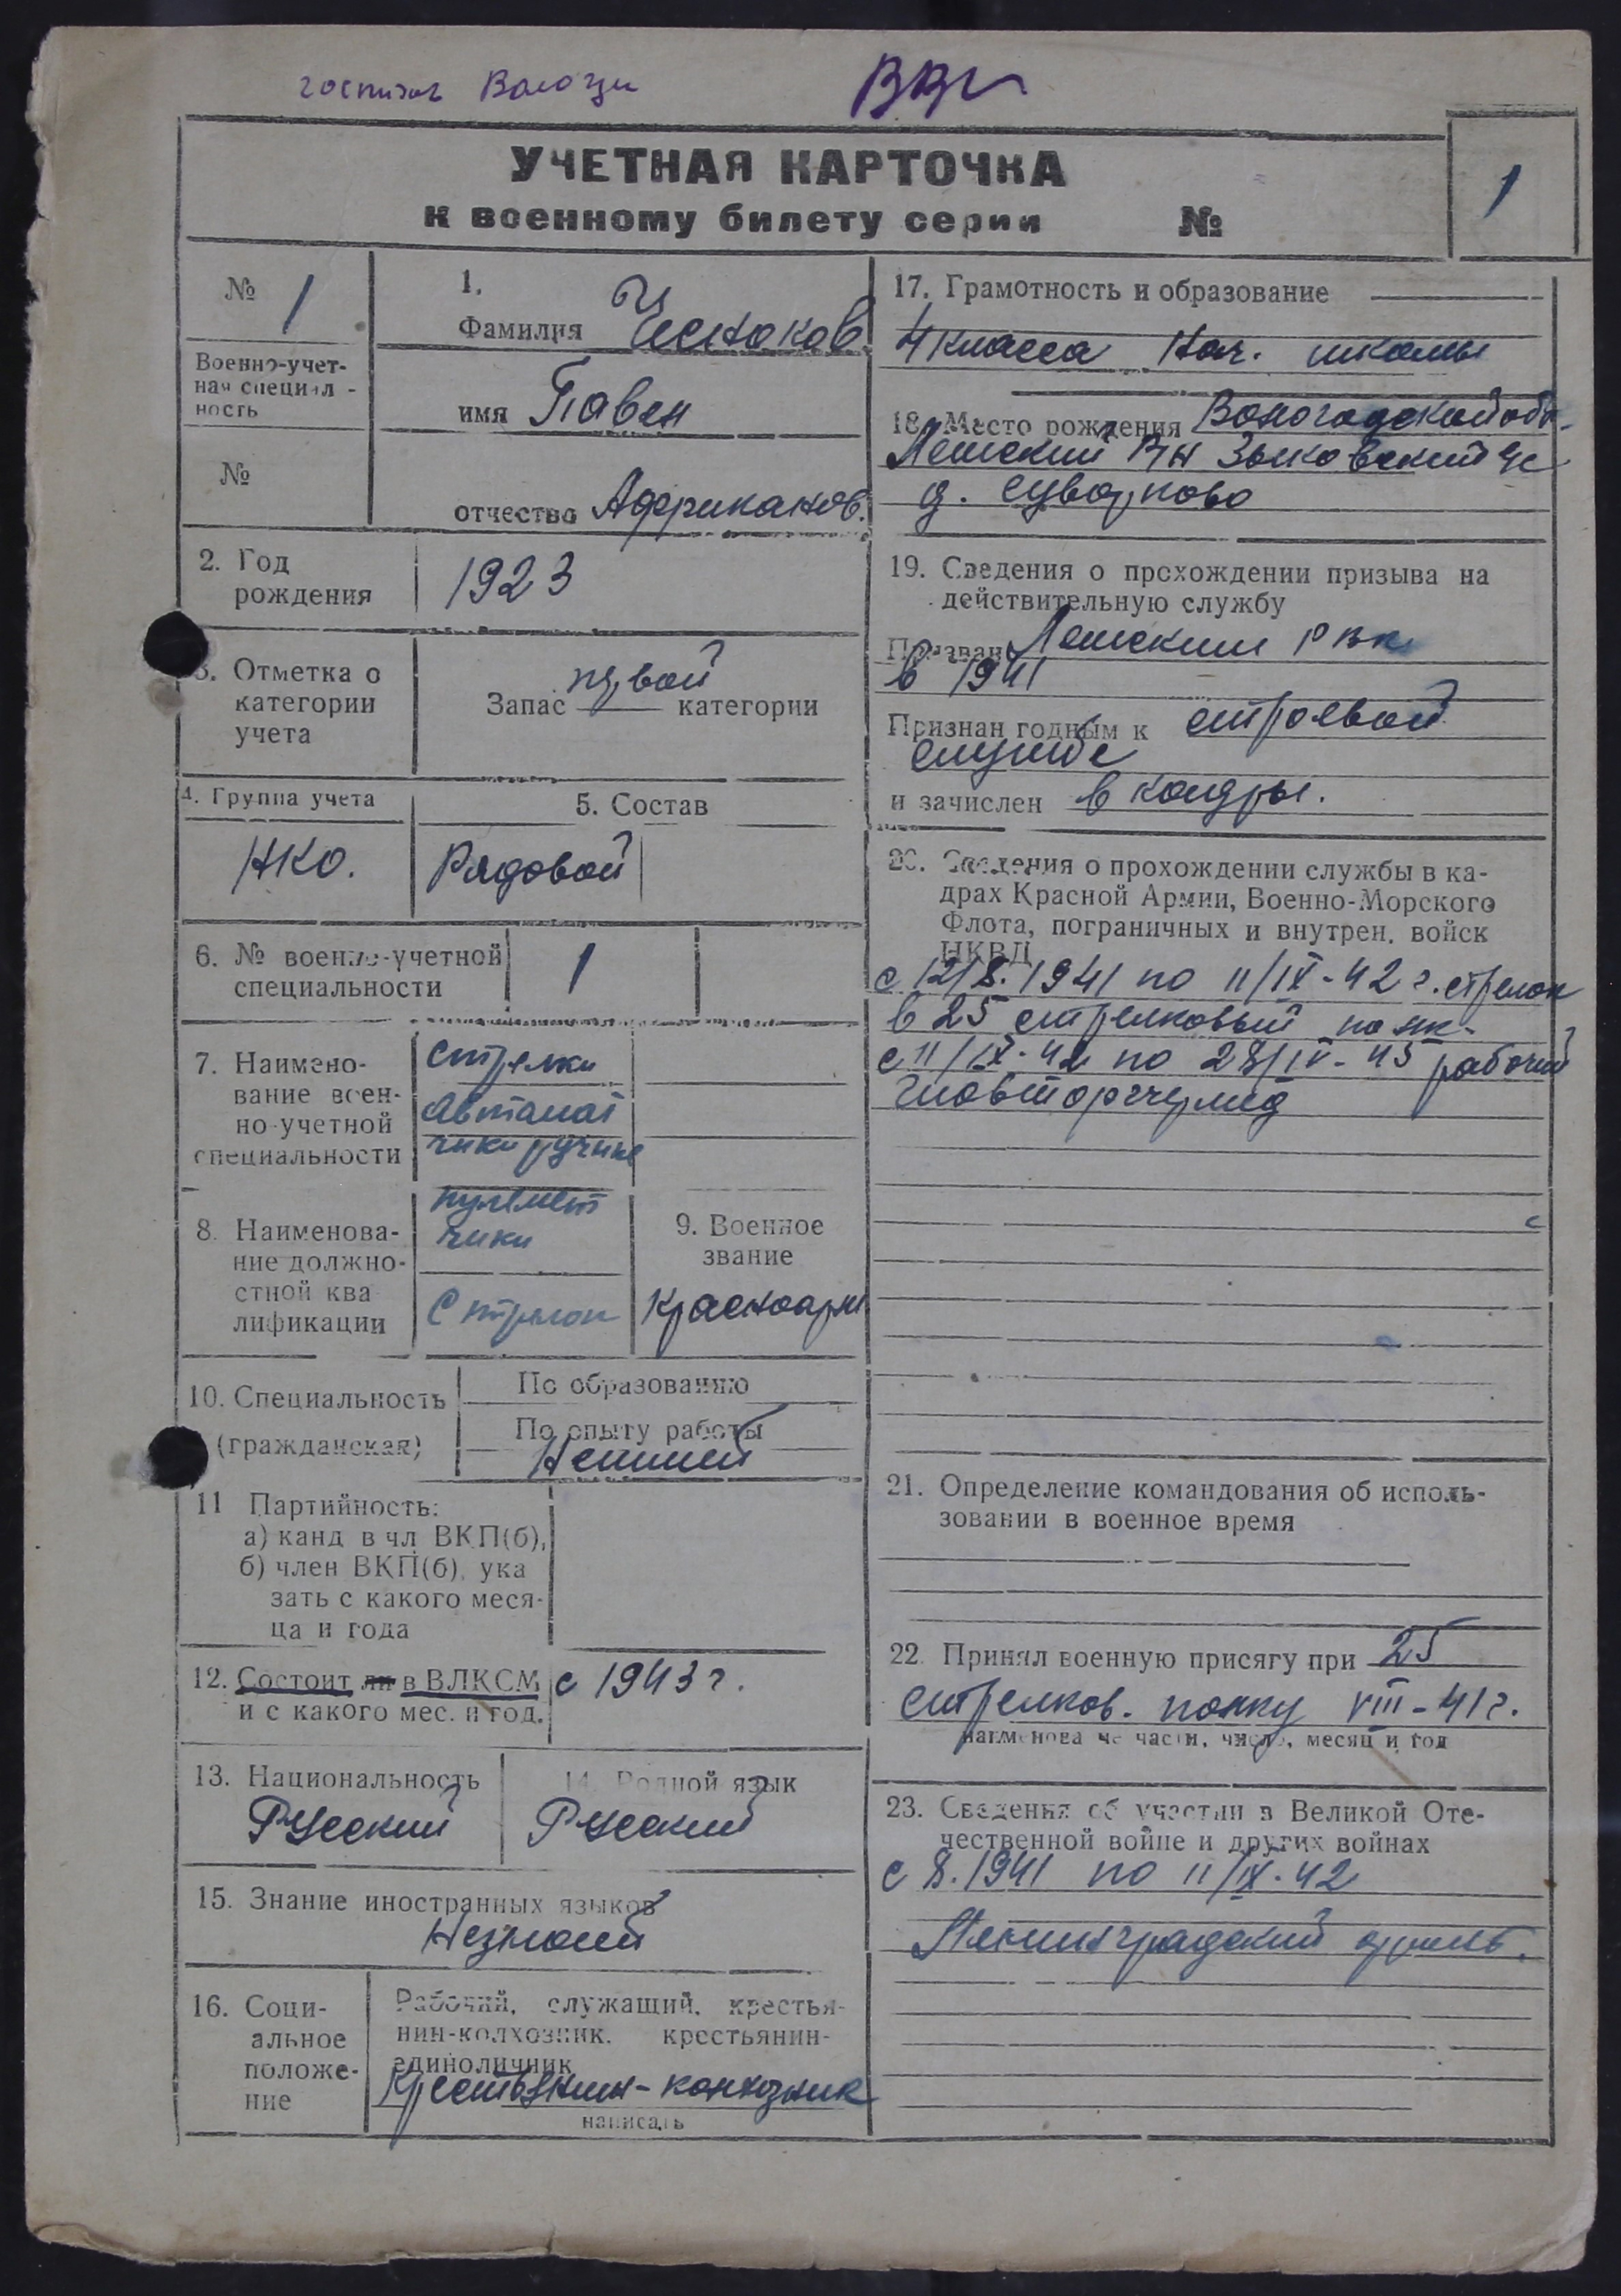 госпиталь Вологды
ВВк
УЧЕТНАЯ КАРТОЧКА
к военному билету серии №
1
№ 1
Военно-учет-
ная специал -
ность
№
1.
Фамилия Чесноков
имя Павел
отчество Африканов.
2. Год
рождения
1923
3. Отметка о
категории
учета
первой
Запас категории
4. Группа учета
НКО.
5. Состав
Рядовой
6. № военно-учетной
специальности
1
7. Наимено-
вание воен-
но-учетной
специальности
Стрелки
автомат
чики ручные
пулемет
чики
8. Наименова-
ние должно-
стной ква
лификации
Стрелок
9. Военное
звание
Красноарм
10. Специальность
(гражданская)
По образованию
По опыту работы
Неимеет
11 Партийность:
а) канд в чл ВКП(б),
б) член ВКП(б), ука
зать с какого меся-
ца и года
12. Состоит ли в ВЛКСМ
и с какого мес. и год.
с 1943 г.
13. Национальность
Русский
14. Родной язык
Русский
15. Знание иностранных языков
Незнает
16. Соци-
альное
положе-
ние
Рабочий, служащий, крестья-
нин-колхозник, крестьянин-
единоличник
Крестьянин-колхозник
написать
17. Грамотность и образование
4 класса нач. школы
18. Место рождения Вологодской обл.
Лежский р-н Зыковский с/с
д. Суворково
19. Сведения о прохождении призыва на
действительную службу
Призван Лежским РВК
в 1941
Признан годным к строевой
службе
и зачислен в кадры.
20. Сведения о прохождении службы в ка-
драх Красной Армии, Военно-Морского
Флота, пограничных и внутрен. войск
НКВД
с 12/8. 1941 по 11/IX-42 г. стрелок
в 25 стрелковый полк-
с 11/IX-42 по 28/IV-45 рабочий
21. Определение командования об исполь-
зовании в военное время
22 Принял военную присягу при 25
стрелков. полку VIII-41г.
наименова ие части, число, месяц и год
23. Сведения об участии в Великой Оте-
чественной войне и других войнах
с 8. 1941 по 11/IX-42
Ленинградский фронт.